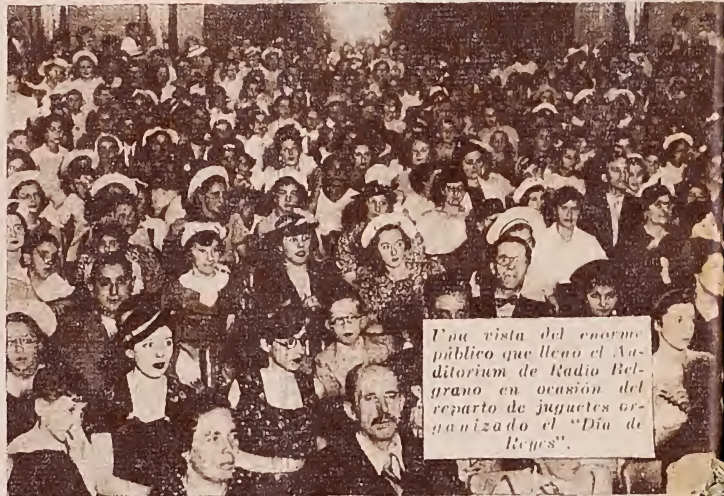 Una vista del enorme
público que llenó el Au-
ditorium de Radio Bel-
grano en ocasión del
reparto de juguetes or-
ganizado el "Día de
Reyes".